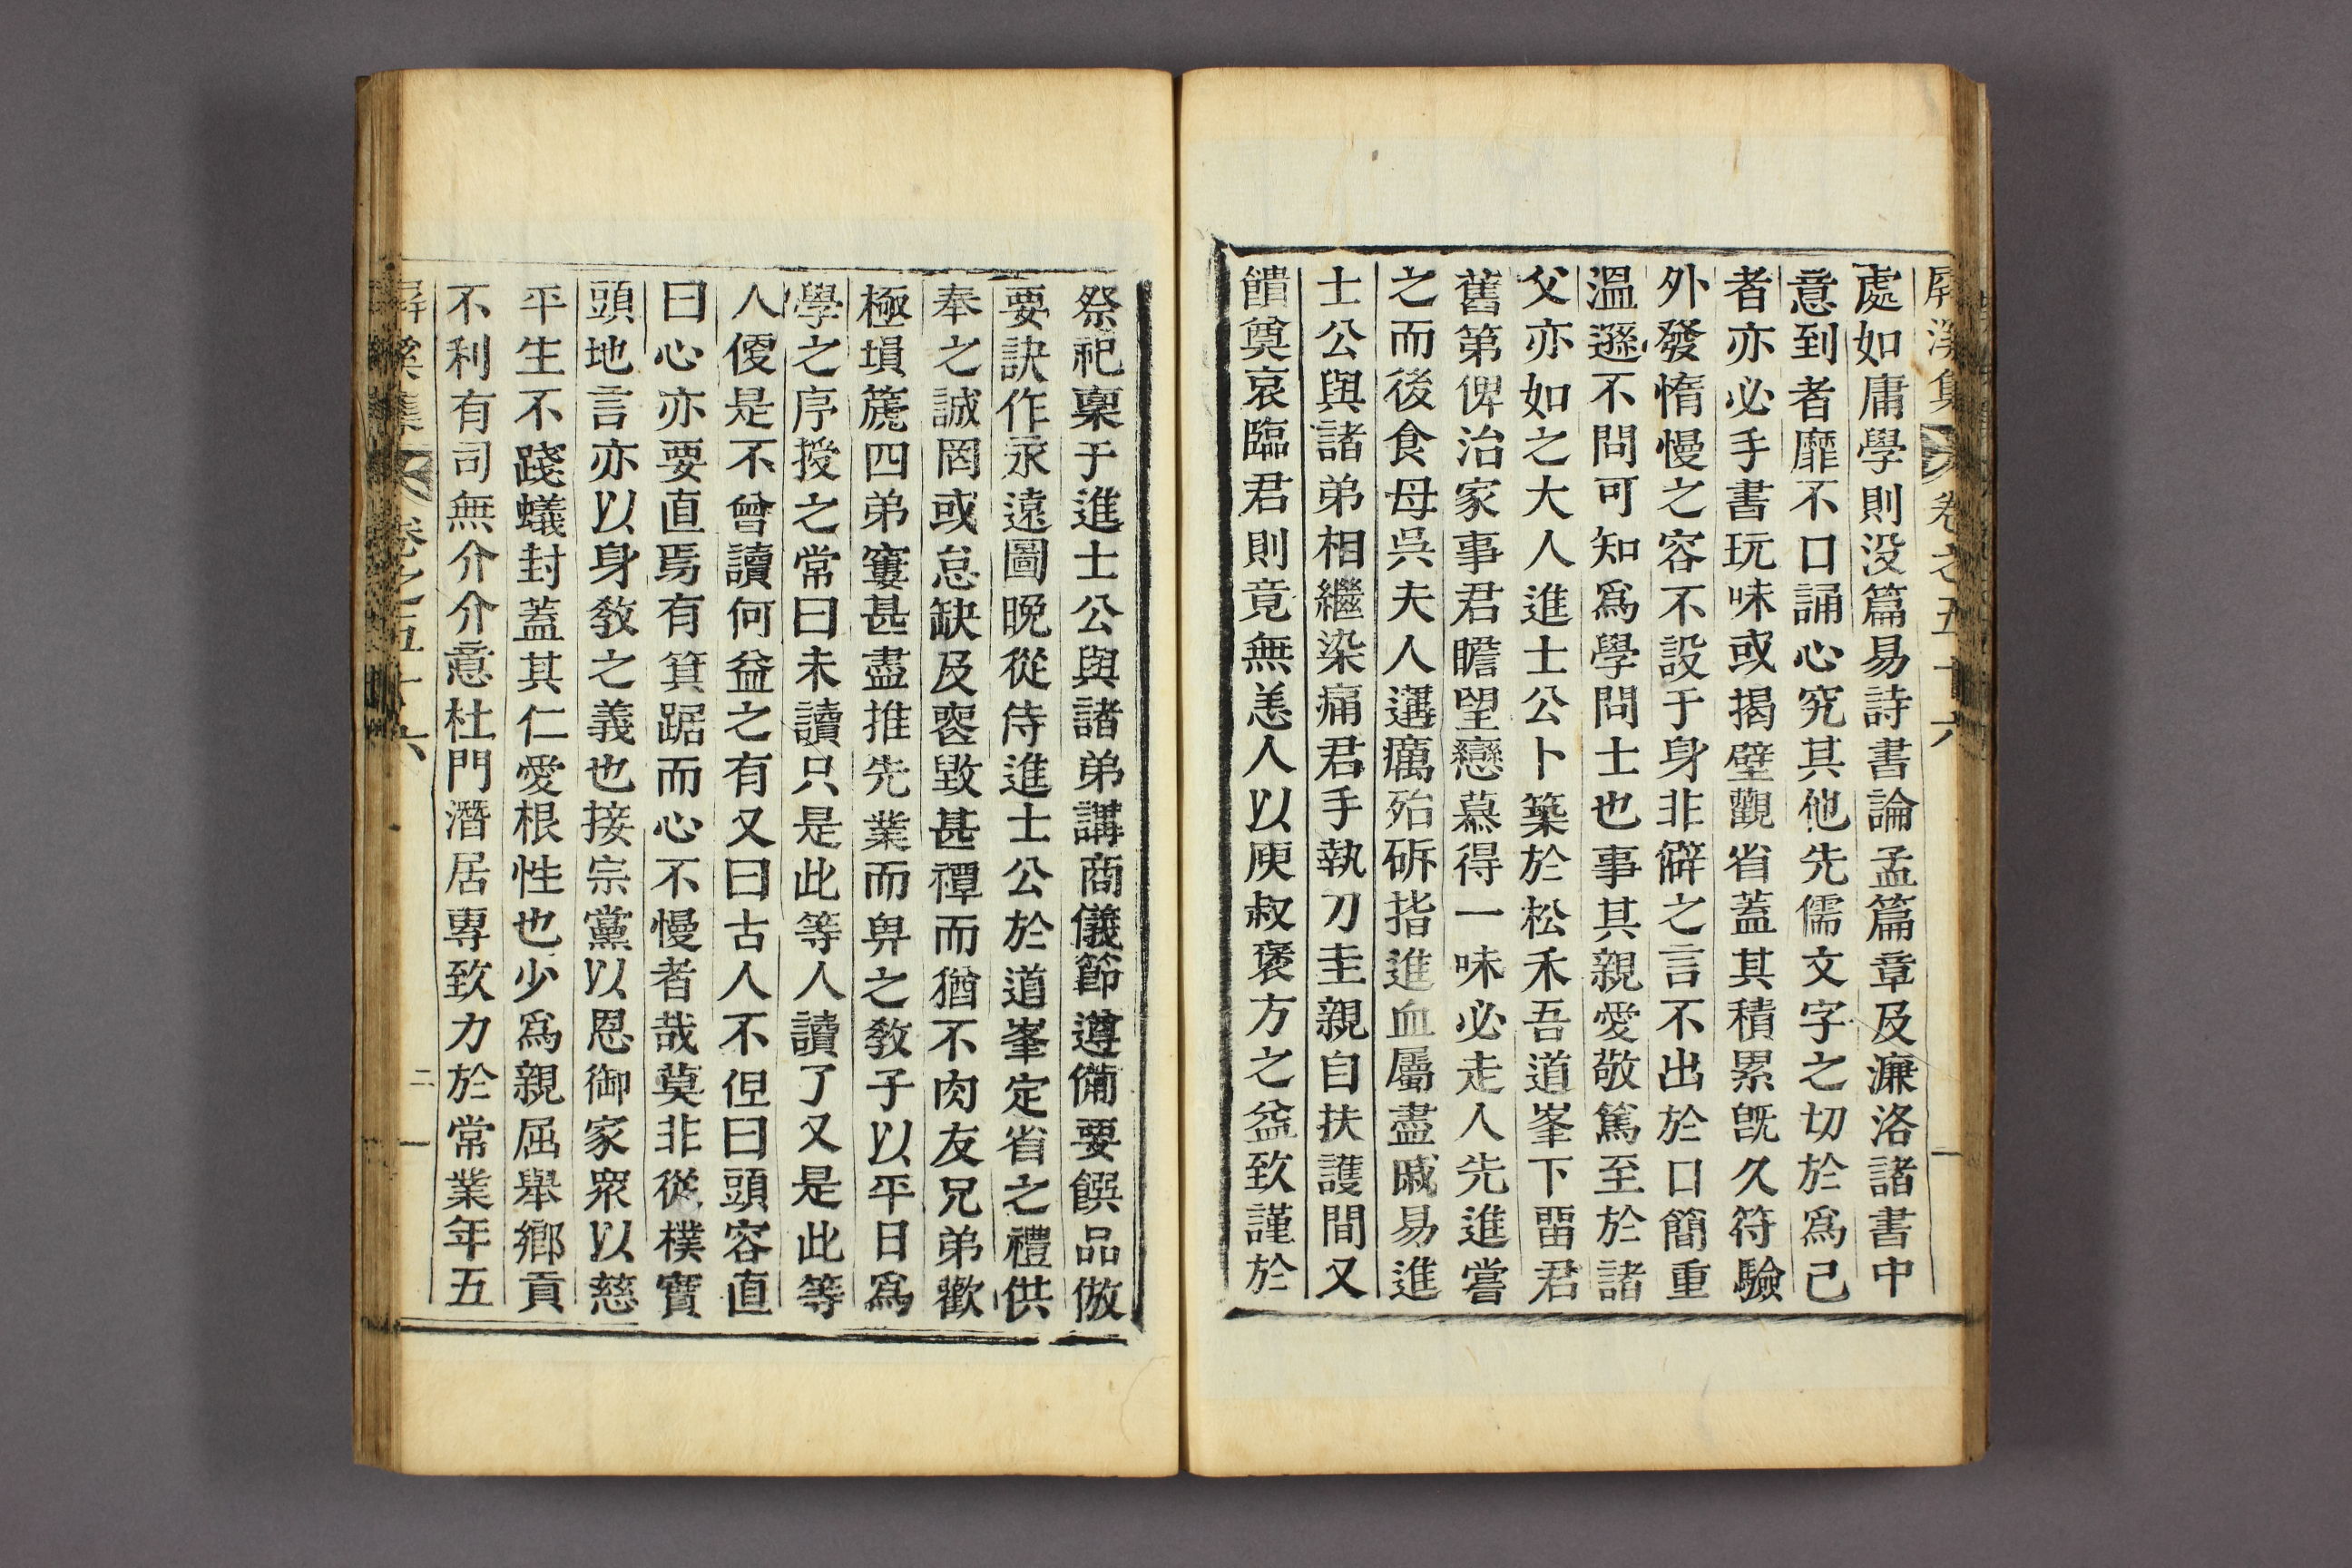 屛溪集 卷之五十六 一
處如庸學則没篇易詩書論孟篇章及濂洛諸書中
意到者靡不口誦心究其他先儒文字之切於爲己
者亦必手書玩味或揭壁觀省蓋其積累旣久符驗
外發惰慢之容不設于身非僻之言不出於口簡重
溫遜不問可知爲學問士也事其親愛敬篤至於諸
父亦如之大人進士公卜築於松禾吾道峯下留君
舊第俾治家事君瞻望戀慕得一味必走人先進嘗
之而後食母吳夫人遘癘殆斫指進血屬盡戚易進
士公與諸弟相繼染痛君手執刀圭親自扶護間又
饋奠哀臨君則竟無恙人以庾叔褒方之益致謹於
祭祀稟于進士公與諸弟講商儀節遵備要饌品倣
要訣作永遠圖晩從侍進士公於道峯定省之禮供
奉之誠罔或怠缺及喪毀甚禫而猶不肉友兄弟歡
極塤篪四弟窶甚盡推先業而畀之敎子以平日爲
學之序授之常曰未讀只是此等人讀了又是此等
人優是不曾讀何益之有又曰古人不但曰頭容直
曰心亦要直焉有箕踞而心不慢者哉莫非從樸實
頭地言亦以身敎之義也接宗黨以恩御家衆以慈
平生不踐蟻封蓋其仁愛根性也少爲親屈擧鄕貢
不利有司無介介意杜門潛居專致力於常業年五
屛溪集 卷之五十六 二 一